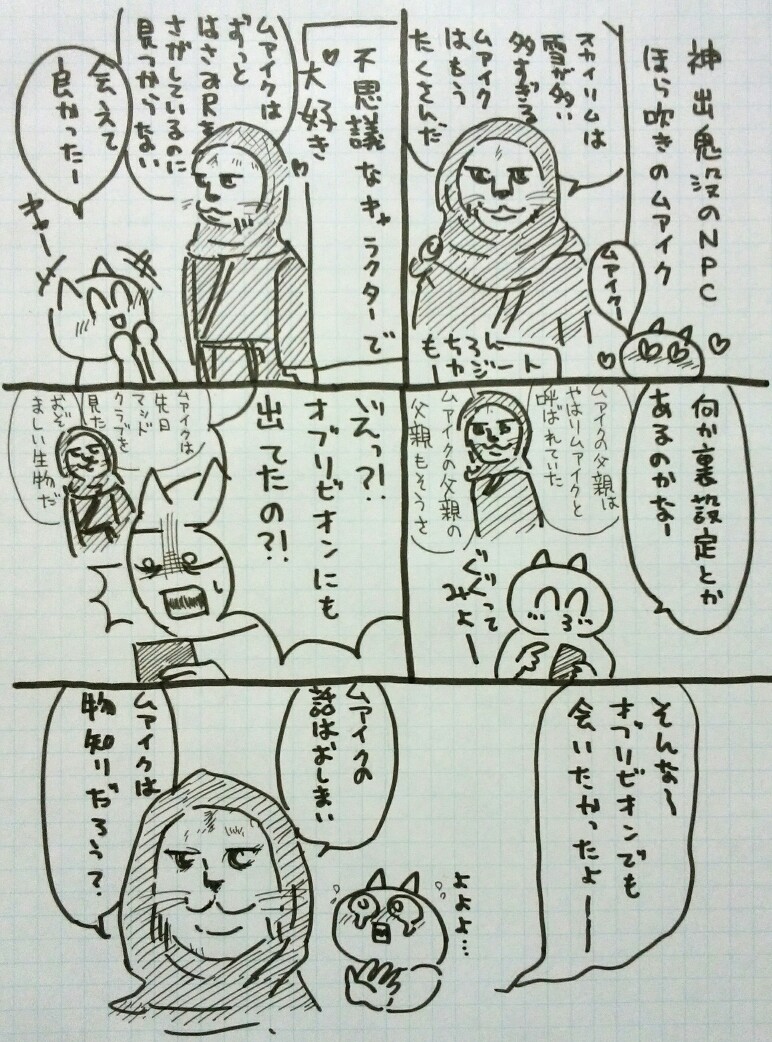 神出鬼没のNPC
ほら吹きのムアイク
ムアイクー
スカイリムは
雪が多い
多すぎる
ムアイク
はもう
たくさんだ
もちろん
カジート
不思議なキャラクターで
大好き
ムアイクは
ずっと
はさみ尺を
さがしているのに
見つからない
会えて
良かったー
きゃー
何か裏設定とか
あるのかなー
ムアイクの父親は
やはりムアイクと
呼ばれていた
ムアイクの父親の
父親もそうさ
ぐぐって
みよー
え゛っ?!
オブリビオンにも
出てたの?!
ムアイクは
先日
マッド
クラブを
見た
おぞ
ましい生物だ
そんな〜
オブリビオンでも
会いたかったよー
よよよ…
ムアイクの
話はおしまい
ムアイクは
物知りだろう?